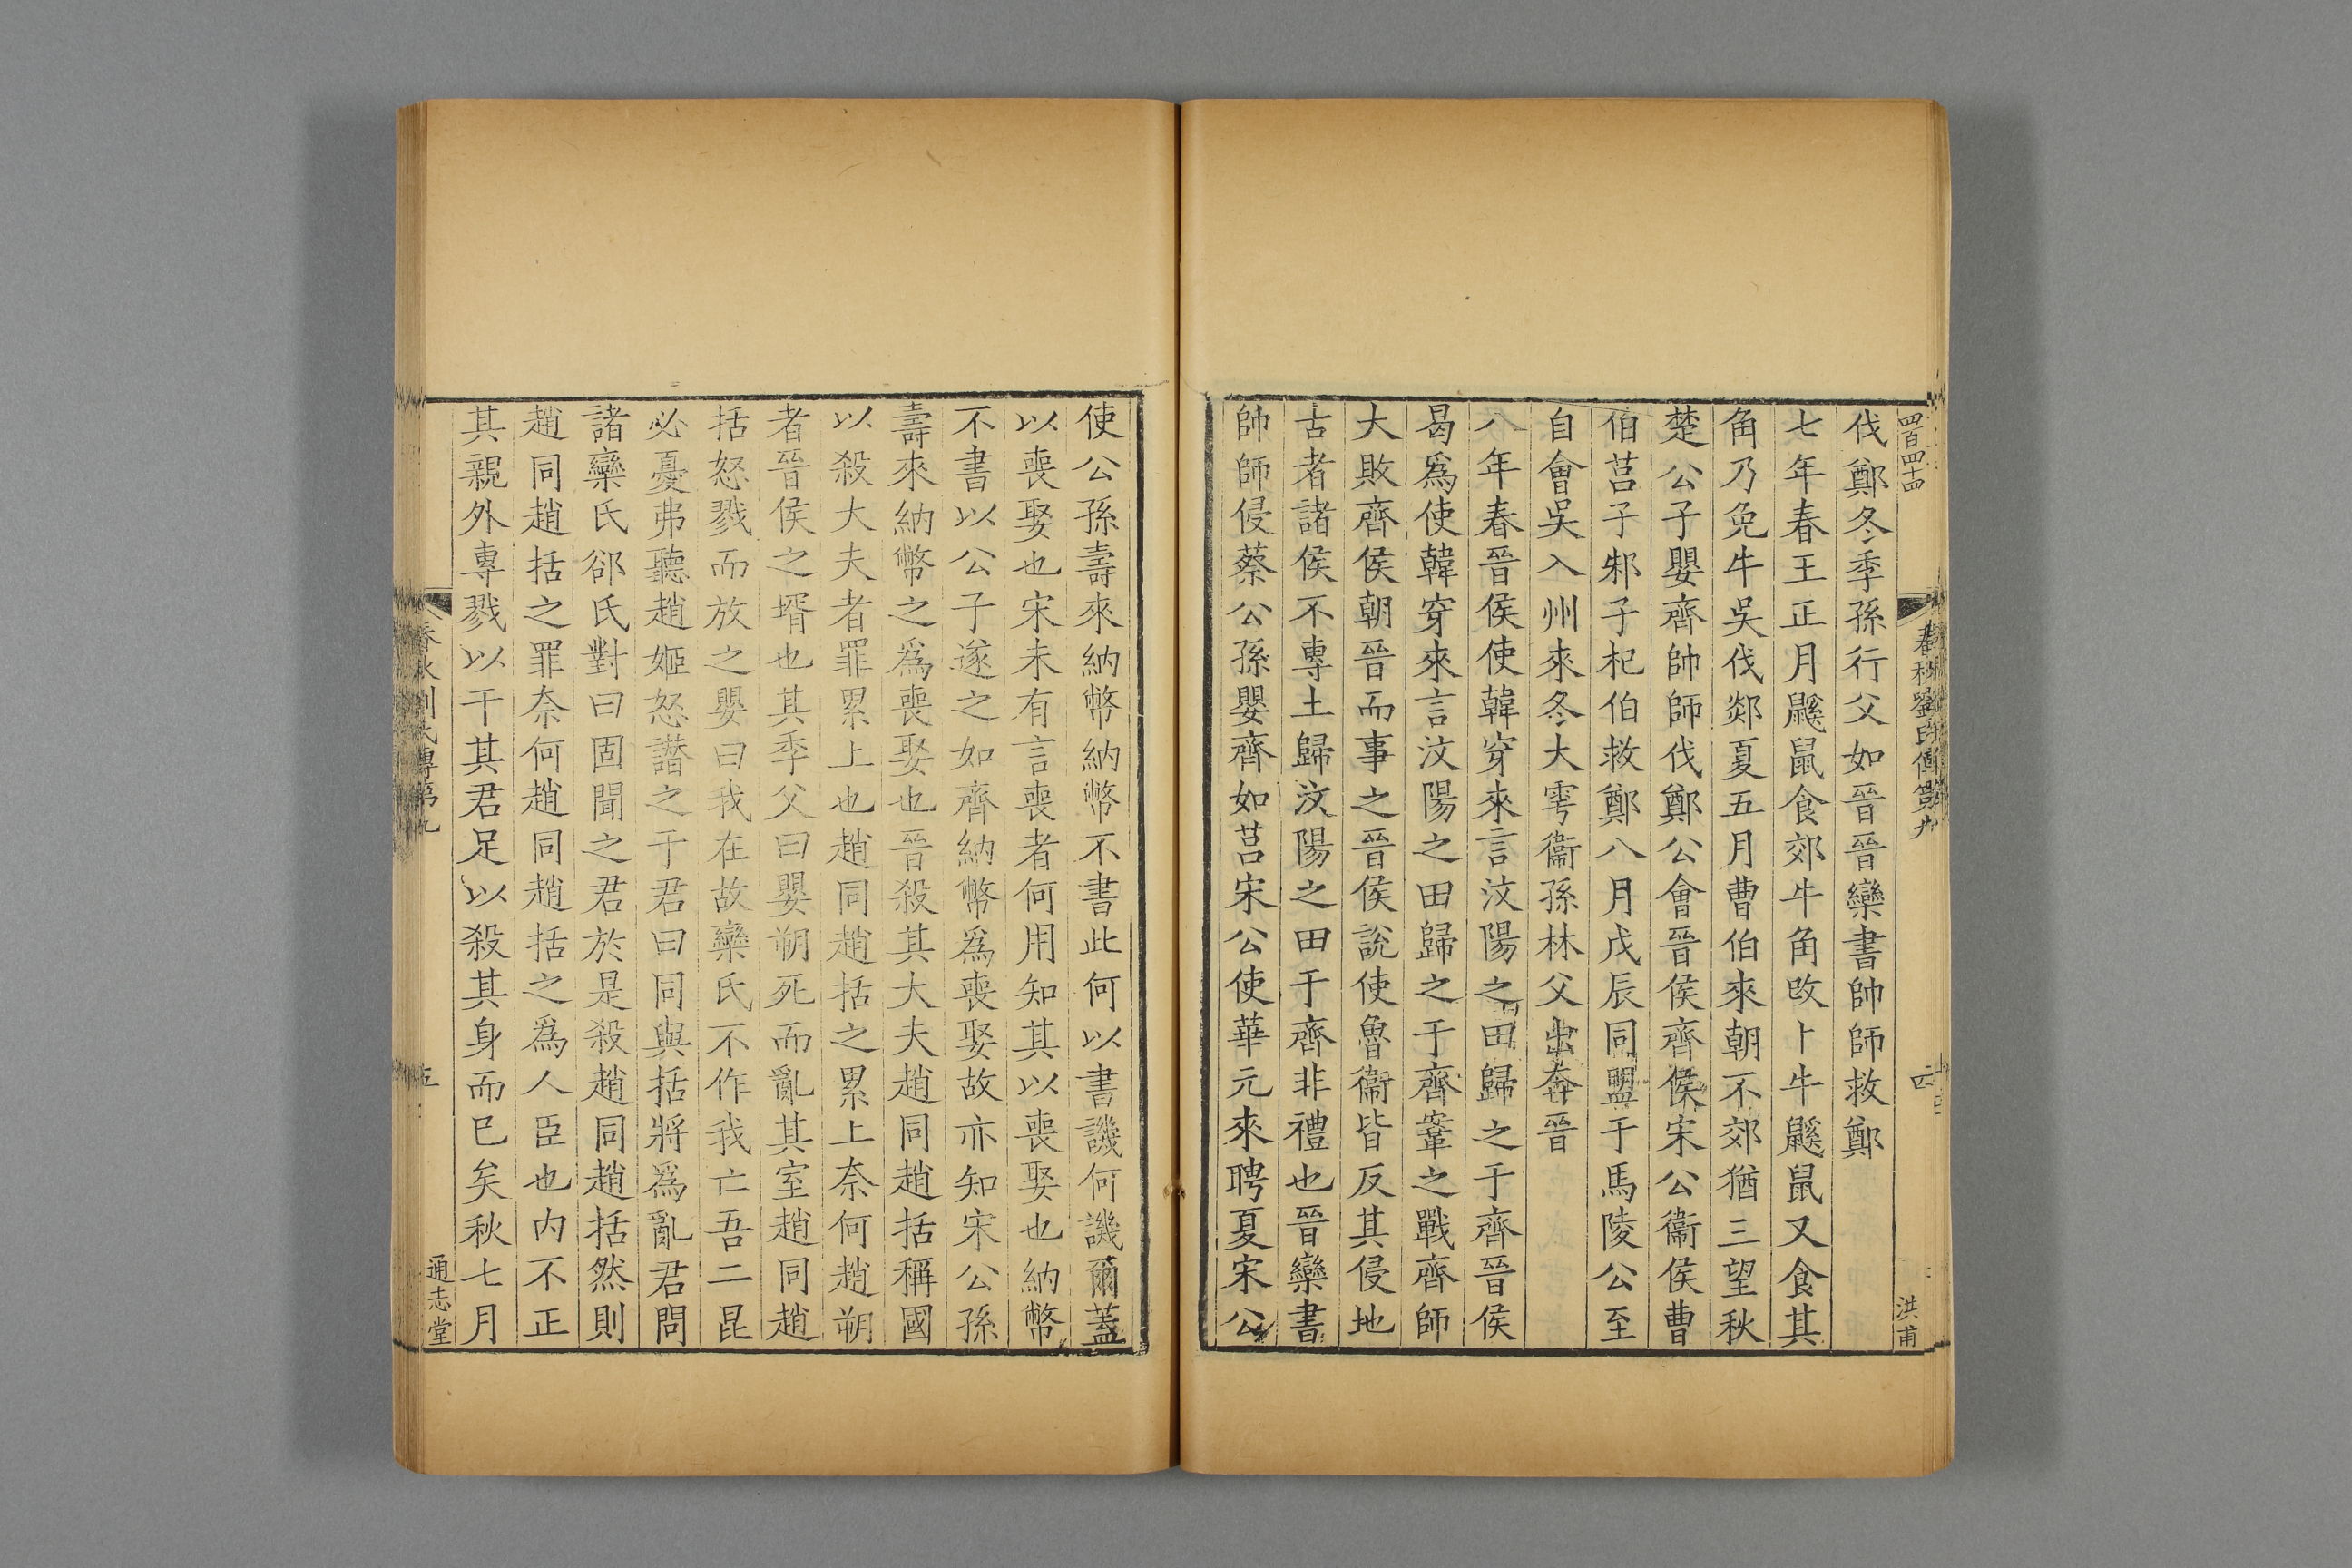 四百四十四
春秋劉氏傳第九
四
洪甫
伐鄭冬季孫行父如晉晉欒書帥師救鄭
七年春王正月鼷鼠食郊牛角改卜牛鼷鼠又食其
角乃免牛吳伐郯夏五月曹伯來朝不郊猶三望秋
楚公子嬰齊帥師伐鄭公會晉侯齊侯宋公衞侯曹
伯莒子邾子杞伯救鄭八月戊辰同盟于馬陵公至
自會吳入州來冬大雩衞孫林父出奔晉
八年春晉侯使韓穿來言汶陽之田歸之于齊晉侯
曷爲使韓穿來言汶陽之田歸之于齊鞌之戰齊師
大敗齊侯朝晉而事之晉侯說使魯衞皆反其侵地
古者諸侯不專土歸汶陽之田于齊非禮也晉欒書
帥師侵蔡公孫嬰齊如莒宋公使華元來聘夏宋公
使公孫壽來納幣納幣不書此何以書譏何譏爾蓋
以喪娶也宋未有言喪者何用知其以喪娶也納幣
不書以公子遂之如齊納幣爲喪娶故亦知宋公孫
壽來納幣之爲喪娶也晉殺其大夫趙同趙括稱國
以殺大夫者罪累上也趙同趙括之累上奈何趙朔
者晉侯之壻也其季父曰嬰朔死而亂其室趙同趙
括怒戮而放之嬰曰我在故欒氏不作我亡吾二昆
必憂弗聽趙姬怒譖之于君曰同與括將爲亂君問
諸欒氏郤氏對曰固聞之君於是殺趙同趙括然則
趙同趙括之罪奈何趙同趙括之爲人臣也内不正
其親外專戮以干其君足以殺其身而已矣秋七月
春秋劉氏傳第九
五
通志堂